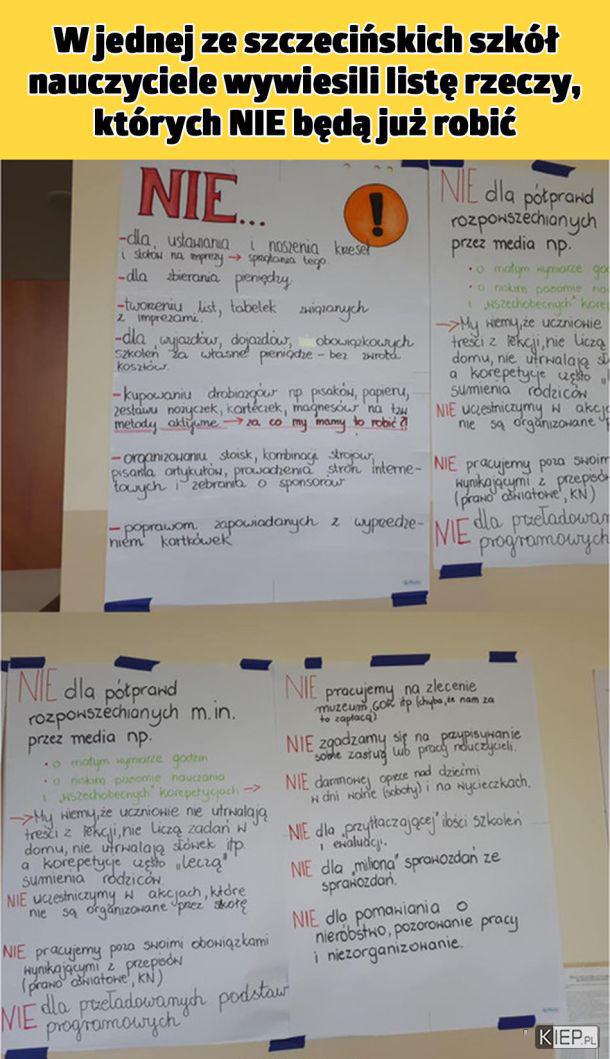 W jednej ze szczecińskich szkół
nauczyciele wywiesili listę rzeczy,
których NIE będą już robić
NIE...
!
-dla ustawiania i noszenia krzeseł
i stołów na imprezy → sprzątania tego.
-dla zbierania pieniędzy.
-tworzeniu list, tabelek związanych
z imprezami.
-dla wyjazdów, dojazdów, obowiązkowych
szkoleń za własne pieniądze - bez zwrotu
kosztów.
-kupowaniu drobiazgów np pisaków, papieru,
zestawu nożyczek, karteczek, magnesów na tzw
metody aktywne → za co my mamy to robić?!
-organizowaniu stoisk, kombinacji strojów,
pisania artykułów, prowadzenia stron interne-
towych i żebrania o sponsorów
-poprawom zapowiadanych z wyprzedze-
niem kartkówek
NIE dla półprawd
rozpowszechianych
przez media np.
• o małym wymiarze
• o niskim poziomie
i "wszechobecnych"
→My wiemy, że uczniowie
treści z lekcji, nie liczą
domu, nie utrwalają
a korepetycje często
sumienia rodziców
NIE uczestniczymy w
nie są organizowane
NIE pracujemy poza swoim
wynikającymi z przepisów
(prawo oświatowe, KN)
NIE dla
programowych
NIE dla półprawd
rozpowszechianych m.in.
przez media np.
• o małym wymiarze godzin
• o niskim poziomie nauczania
i "wszechobecnych" korepetycjach →
→My wiemy, że uczniowie nie utrwalają
treści z lekcji, nie liczą zadań w
domu, nie utrwalają słówek itp.
a korepetycje często "leczą"
sumienia rodziców
NIE uczestniczymy w akcjach, które
nie są organizowane przez szkołę
NIE pracujemy poza swoimi obowiązkami
wynikającymi z przepisów
(prawo oświatowe, KN)
NIE dla przeładowanych podstaw
programowych
NIE pracujemy na zlecenie
muzeum, GOK itp (chyba, że nam za
to zapłacą)
NIE zgadzamy się na przypisywanie
sobie zasług lub pracy nauczycieli.
NIE darmowej opiece nad dziećmi
w dni wolne (soboty) i na wycieczkach.
NIE dla "przytłaczającej" ilości szkoleń
i ewaluacji.
NIE dla "miliona" sprawozdań ze
sprawozdań.
NIE dla pomawiania o
nieróbstwo, pozorowanie pracy
i niezorganizowanie.
KIEP.PL